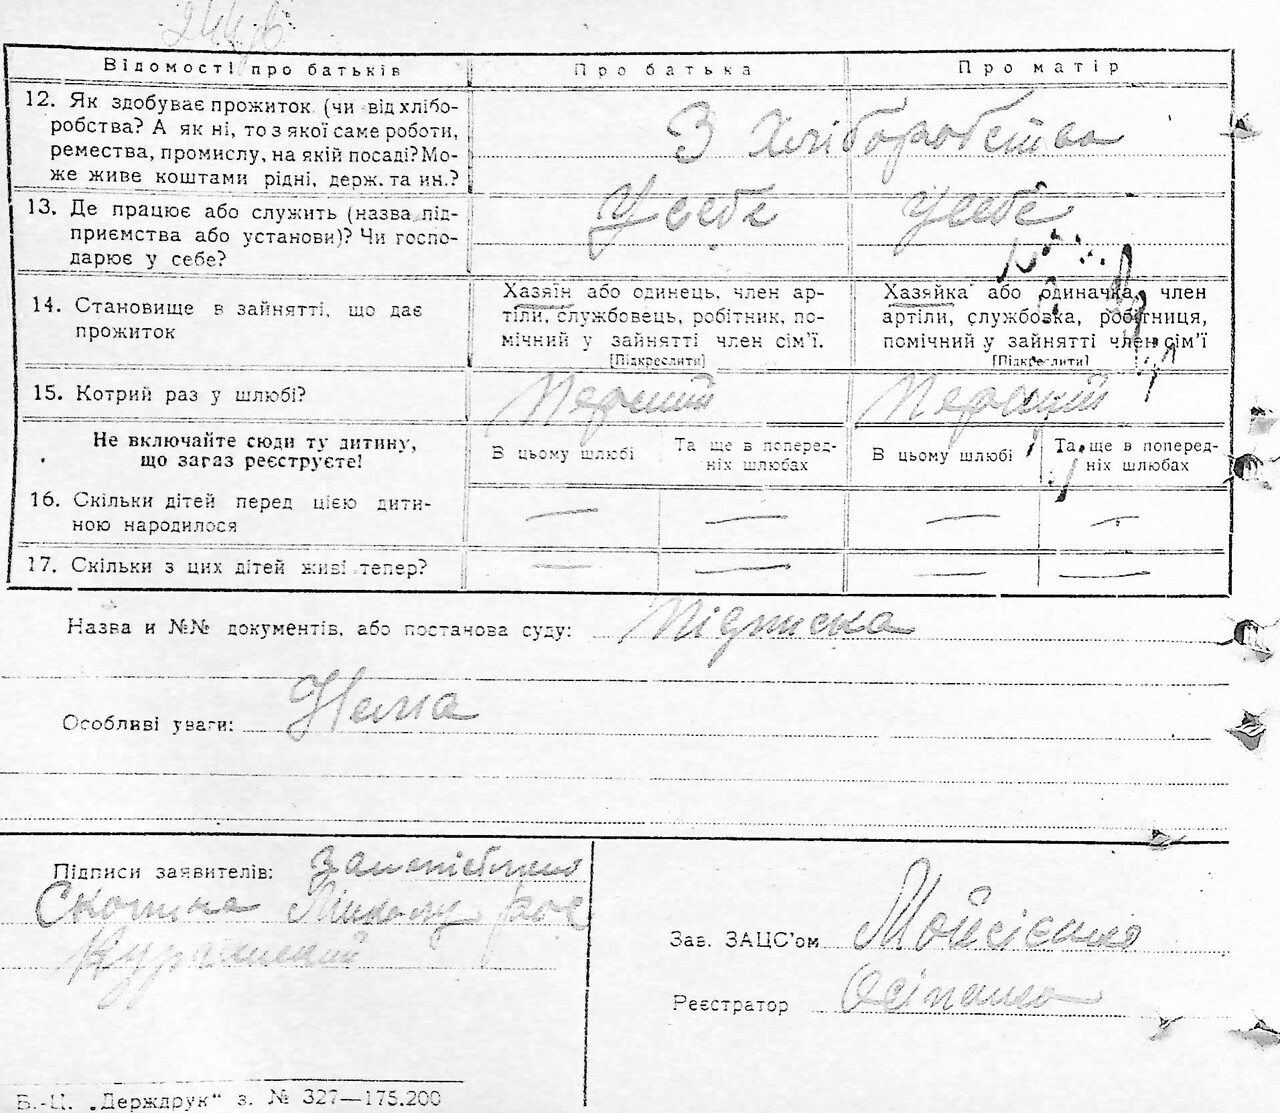 Відомості про батьків
Про батька
Про матір
12. Як здобуває прожиток (чи від хлібо-
робства? А як ні, то з якої саме роботи,
ремества, промислу, на якій посаді? Мо-
же живе коштами рідні, держ. та ин.?
З Хліборобства
13. Де працює або служить (назва під-
приємства або установи)? Чи госпо-
дарює у себе?
У себе
У себе
14. Становище в зайнятті, що дає
прожиток
Хазяїн або одинець, член ар-
тіли, службовець, робітник, по-
мічний у зайнятті член сім'ї.
[Підкреслити]
Хазяйка або одиначка, член
артіли, службовка, робітниця,
помічний у зайнятті член сім'ї
[Підкреслити]
15. Котрий раз у шлюбі?
Перший
Перший
Не включайте сюди ту дитину,
що загаз реєструєте!
В цьому шлюбі
Та ще в поперед-
ніх шлюбах
В цьому шлюбі
Та ще в поперед-
ніх шлюбах
16. Скільки дітей перед цією дити-
ною народилося
— — — —
17. Скільки з цих дітей живі тепер?
— — — —
Назва и №№ документів, або постанова суду: Підписка
Особливі уваги: Нема
Підписи заявителів:
Зав. ЗАЦС'ом Мойсієнко
Реєстратор Осіпенко
Б.-Ц. „Держдрук" з. № 327—175.200